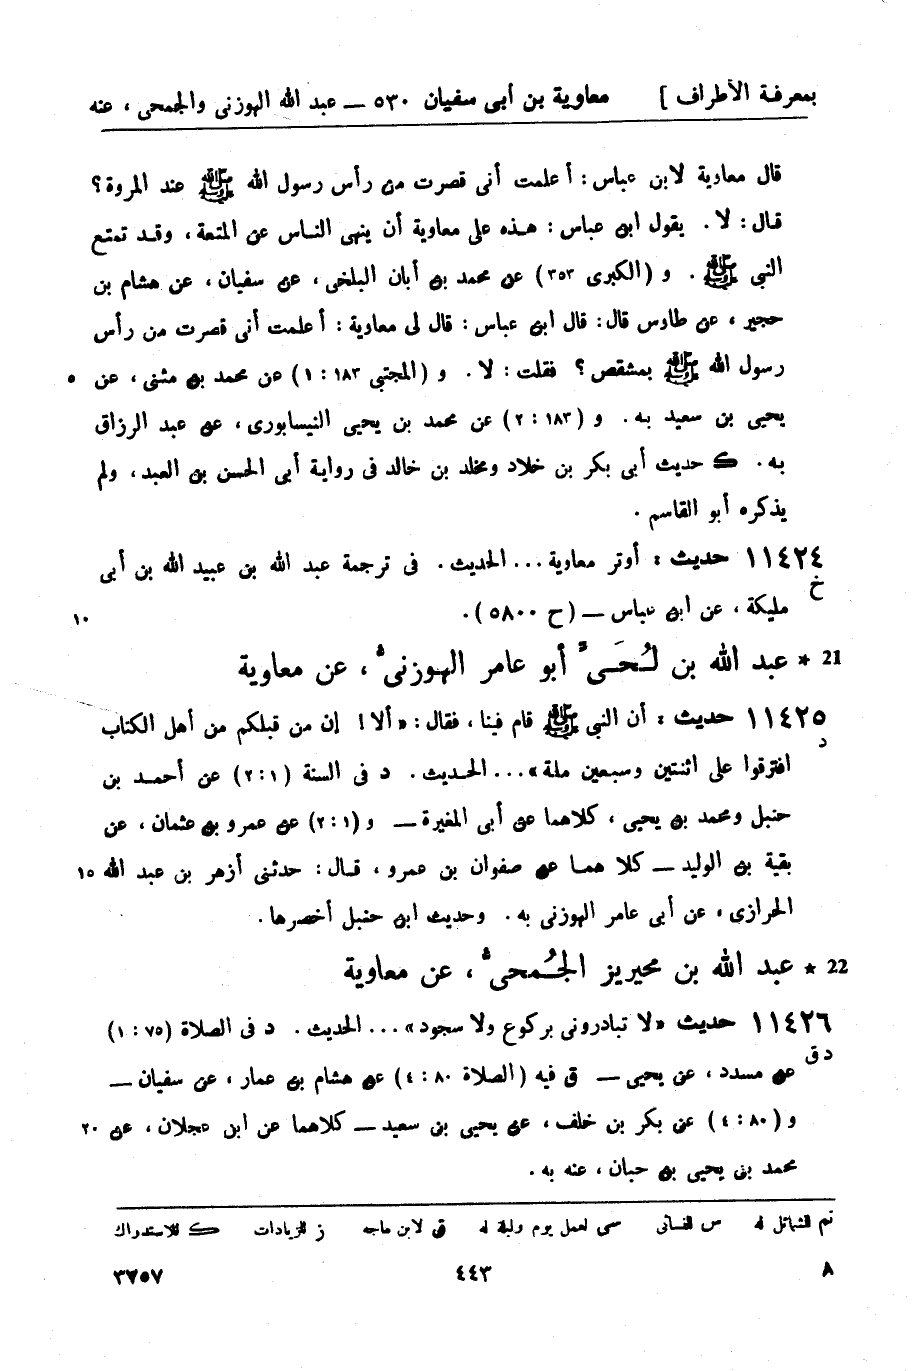 بمعرفة الأطراف ] معاوية بن أبى سفيان ٥٣٠ — عبد الله الهوزنى والجمحى ، عنه
قال معاوية لابن عباس : أ علمت أنى قصرت من رأس رسول الله ﷺ عند المروة ؟
قال : لا . يقول ابن عباس : هذه على معاوية أن ينهى الناس عن المتعة ، وقد تمتع
النبى ﷺ . و ( الكبرى ٣٥٣ ) عن محمد بن أبان البلخى ، عن سفيان ، عن هشام بن
حجير ، عن طاوس قال : قال ابن عباس : قال لى معاوية : أ علمت أنى قصرت من رأس
رسول الله ﷺ بمشقص ؟ فقلت : لا . و ( المجتبى ١٨٣ : ١ ) عن محمد بن مثنى ، عن ٥
يحيى بن سعيد به . و ( ١٨٣ : ٢ ) عن محمد بن يحيى النيسابورى ، عن عبد الرزاق
به . ك حديث أبى بكر بن خلاد ومخلد بن خالد فى رواية أبى الحسن بن العبد ، ولم
يذكره أبو القاسم .
١١٤٢٤ حديث : أوتر معاوية ... الحديث . فى ترجمة عبد الله بن عبيد الله بن أبى
خ
مليكة ، عن ابن عباس — ( ح ٥٨٠٠ ) . ١٠
21 * عبد الله بن لُحَىّ أبو عامر الهوزنى ، عن معاوية
١١٤٢٥ حديث : أن النبى ﷺ قام فينا ، فقال : « ألا ! إن من قبلكم من أهل الكتاب
د
افترقوا على اثنتين وسبعين ملة » ... الحديث . د فى السنة ( ١ : ٢ ) عن أحمد بن
حنبل ومحمد بن يحيى ، كلاهما عن أبى المغيرة — و ( ١ : ٢ ) عن عمرو بن عثمان ، عن
بقية بن الوليد — كلا هما عن صفوان بن عمرو ، قال : حدثنى أزهر بن عبد الله ١٥
الحرازى ، عن أبى عامر الهوزنى به . وحديث ابن حنبل أخصرها .
22 * عبد الله بن محيريز الجُمحى ، عن معاوية
١١٤٢٦ حديث « لا تبادرونى بركوع ولا سجود » ... الحديث . د فى الصلاة ( ٧٥ : ١ )
د ق
عن مسدد ، عن يحيى — ق فيه ( الصلاة ٨٠ : ٤ ) عن هشام بن عمار ، عن سفيان —
و ( ٨٠ : ٤ ) عن بكر بن خلف ، عن يحيى بن سعيد — كلاهما عن ابن عجلان ، عن ٢٠
محمد بن يحيى بن حبان ، عنه به .
تم للشمائل له س للنسائى سى لعمل يوم وليلة له ق لابن ماجه ز للزيادات ك للاستدراك
٨ ٤٤٣ ٣٧٥٧